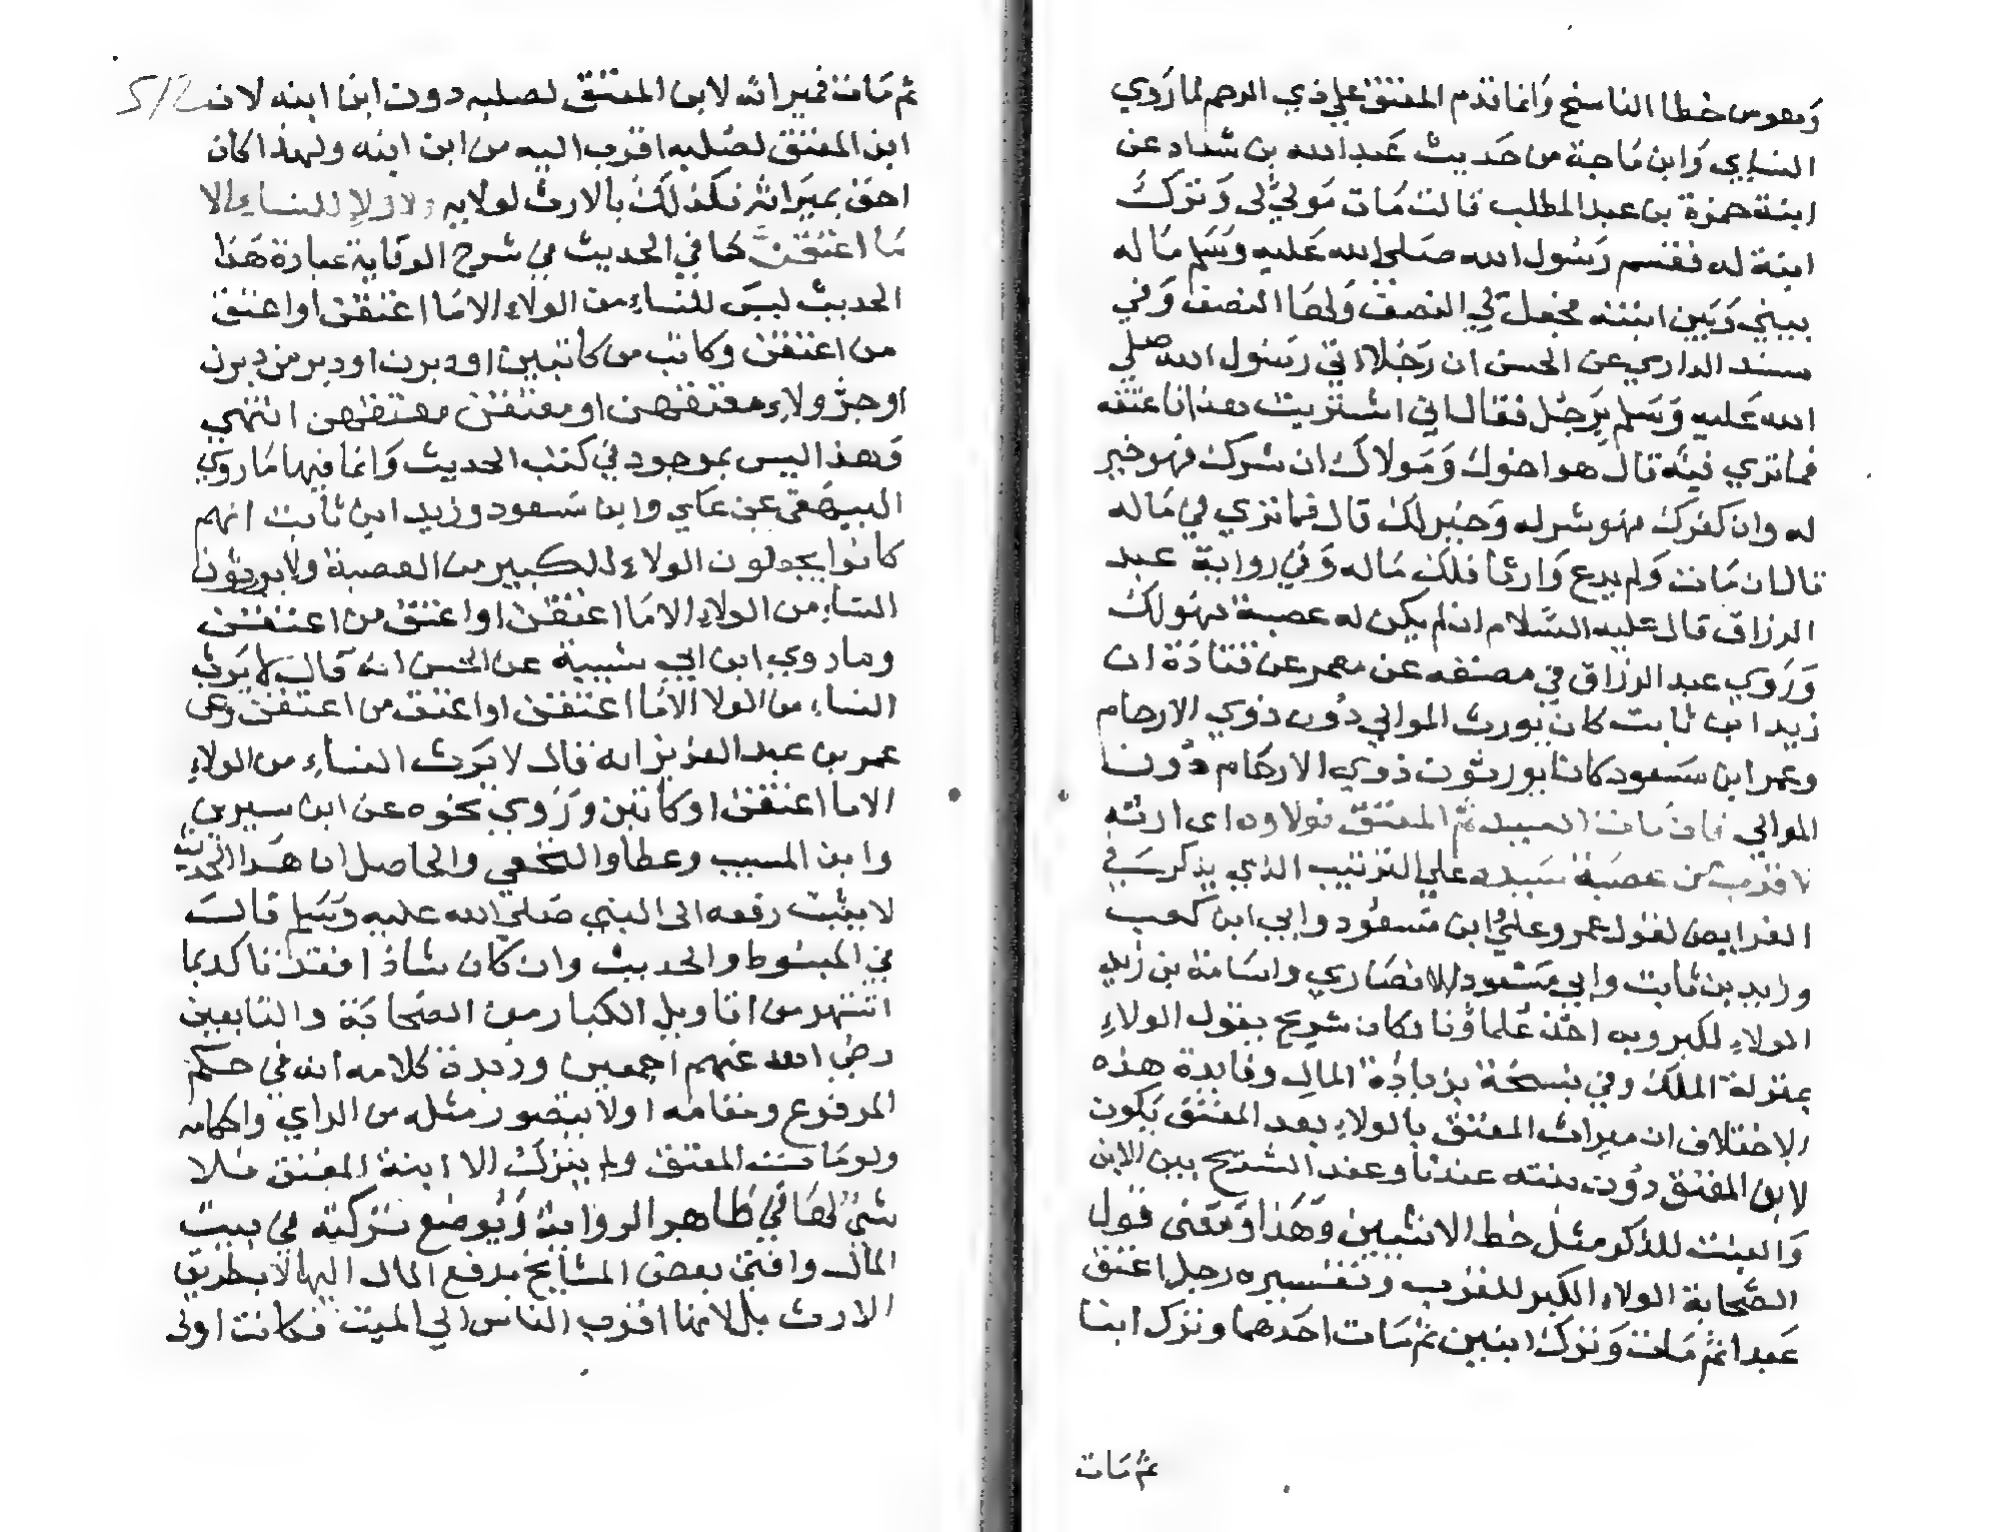 وهو من خطا الناسخ وانما قدم المعتق علي ذي الرحم لما روي
النساي وابن ماجة من حديث عبد الله بن شداد عن
ابنة حمزة بن عبد المطلب قالت مات مولي لي وترك
ابنة له فقسم رسول الله صلي الله عليه وسلم ماله
بيني وبين ابنته فجعل لي النصف ولها النصف وفي
مسند الدارمي عن الحسن ان رجلا اتي رسول الله صلي
الله عليه وسلم برجل فقال اني اشتريت هذا فاعتقته
فما تري فيه قال هو اخوك ومولاك ان شكرك فهو خير
له وان كفرك فهو شر له وخير لك قال فما تري في ماله
قال ان مات ولم يدع وارثا فلك ماله وفي رواية عبد
الرزاق قال عليه السلام ان لم يكن له عصبة فهو لك
وروي عبد الرزاق في مصنفه عن معمر عن قتادة ان
زيد ابن ثابت كان يورث الموالي دون ذوي الارحام
وعمر ابن مسعود كانا يورثون ذوي الارحام دون
الموالي فان مات السيد ثم المعتق فولاوه اي ارثه
لاقرب من عصبة سيده علي الترتيب الذي يذكر في
الفرايض لقول عمر وعلي وابن مسعود وابي ابن كعب
وزيد بن ثابت وابي مسعود الانصاري واسامة بن زيد
الولاء لكبر وبه اخذ علماؤنا وكان شريح يقول الولاء
بمنزلة الملك وفي نسخة بزيادة المال وفايدة هذه
الاختلاف ان ميراث المعتق بالولاء بعد المعتق يكون
لابن المعتق دون بنته عندنا وعند الشريح بين الابن
والبنت للذكر مثل حظ الانثيين وهذا ومعنى قول
الصحابة الولاء الكبر للقرب وتفسيره رجل اعتق
عبدا ثم مات وترك ابنين ثم مات احدهما وترك ابنا
ثم مات
ثم مات فميراثه لابن المعتق لصلبه دون ابن ابنه لان
ابن المعتق لصلبه اقرب اليه من ابن ابنه ولهذا كان
احق بميراثه فكذلك بالارث لولايه ولا ولاء للنساء الا
ما اعتقن كما في الحديث في شرح الوقاية عبارة هذا
الحديث ليس للنساء من الولاء الا ما اعتقن او اعتق
من اعتقن وكاتب من كاتبين او دبرن او دبر من دبرن
او جر ولاء معتقهن او معتقن معتقهن انتهي
وهذا ليس بموجود في كتب الحديث وانما فيها ما روي
البيهقي عن علي وابن مسعود وزيد ابن ثابت انهم
كانوا يجعلون الولاء للكبير من العصبة ولا يورثون
النساء من الولاء الا ما اعتقن او اعتق من اعتقن
وما روي ابن ابي شيبة عن الحسن انه قال لا يرث
النساء من الولا الا ما اعتقن او اعتق من اعتقن وعن
عمر بن عبد العزيز انه قال لا يرث النساء من الولاء
الا ما اعتقن او كاتبن وروي نحوه عن ابن سيرين
وابن المسيب وعطا والنخعي والحاصل ان هذا الحديث
لا يثبت رفعه الى النبي صلي الله عليه وسلم قالت
في المبسوط والحديث وان كان شاذا فقد تاكد بما
اشتهر من اقاويل الكبار من الصحابة والتابعين
رضي الله عنهم اجمعين وزبدة كلامه انه في حكم
المرفوع ومقامه اولا يتصور مثله من الراي واحكامه
ولو مات المعتق ولم يترك الا ابنة المعتق فلا
شي لها في ظاهر الرواية ويوضع تركته في بيت
المال وافتي بعض المشايخ بدفع المال اليها لا بطريق
الارث بل لانها اقرب الناس الي الميت فكانت اولى